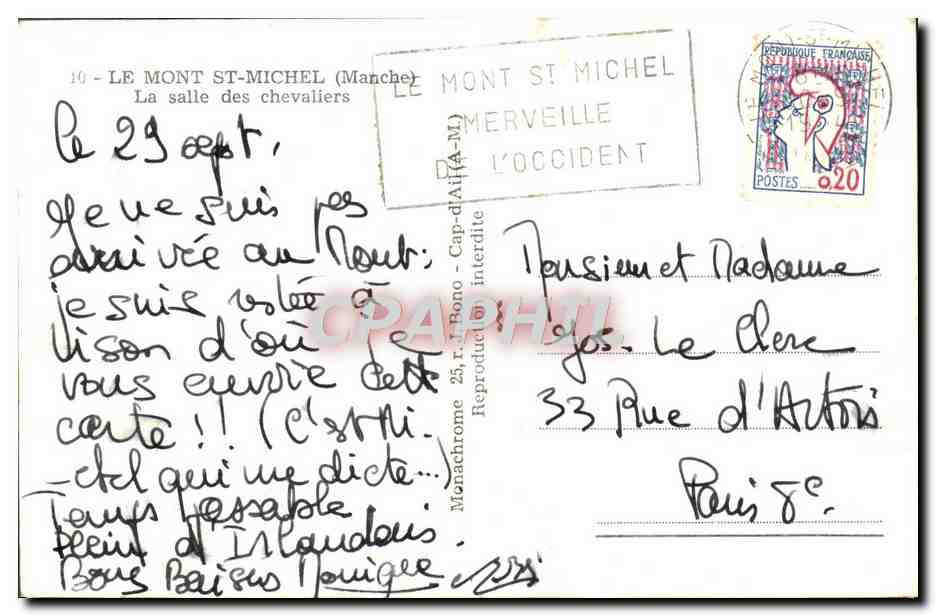 10 - LE MONT ST-MICHEL (Manche)
La salle des chevaliers
LE MONT ST MICHEL
MERVEILLE
DE L'OCCIDENT
RÉPUBLIQUE FRANÇAISE
POSTES 0,20
le 29 sept.
Je ne suis pas
arrivée au Mont;
je suis restée à
d'où je
vous envoie cette
carte!! (C'est Mi-
-chel qui me dicte...)
Temps passable
plein d'Islandais.
Bons Baisers Monique
Monachrome 25, r. J. Bono - Cap-d'Ail (A-M.)
Reproduction interdite
CPAPHIL
Monsieur et Madame
Jos. Le Clerc
33 Rue d'Artois
Paris 8e.